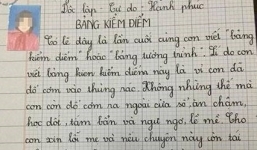 Độc lập - Tự do - Hạnh phúc
BẢNG KIỂM ĐIỂM
Có lẽ đây là lần cuối cùng con viết "bảng
kiểm điểm hoặc "bảng tường trình". Lí do con
viết bảng kiểm điểm này là vì con đã
đổ cơm vào thùng rác. Không những thế mà
con còn đổ cơm ra ngoài cửa sổ ăn chậm,
học dốt, tắm bẩn và ngủ ngơ, lề mề. Cho
con xin lỗi mẹ và nếu chuyện này còn tái